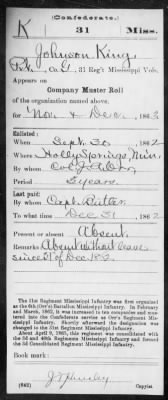 (Confederate.)
K 31 Miss.
Johnson King
Pvt., Co. G, 31 Reg't Mississippi Vols.
Appears on
Company Muster Roll
of the organization named above,
for Nov & Dec, 1862
Enlisted:
When Sept 30, 1862
Where Holly Springs, Miss.
By whom Col. J. A. Orr
Period 3 years
Last paid:
By whom Capt.
To what time Dec 31, 1862
Present or absent Absent
Remarks: Absent without leave
since 21 of Dec 1862
The 31st Regiment Mississippi Infantry was first organized
as the 6th (Orr's) Battalion Mississippi Infantry. In February
and March, 1862, it was increased to ten companies and mus-
tered into the Confederate service as Orr's Regiment Missis-
sippi Infantry. Shortly afterward the designation was
changed to the 31st Regiment Mississippi Infantry.
About April 9, 1865, this regiment was consolidated with
the 3d and 40th Regiments Mississippi Infantry and formed
the 3d Consolidated Regiment Mississippi Infantry.
Book mark:
(642) Copyist.